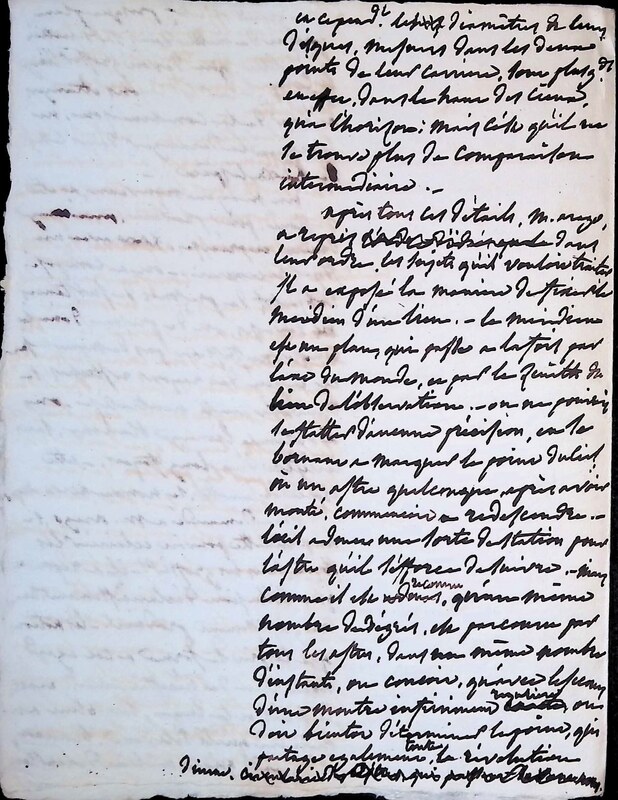 et cependt les diamètres de leurs
disques, mesurés dans les deux
points de leur carrière, sont plus gds
en effet, dans le haut des cieux,
qu'à l'horison: mais c'est qu'il ne
se trouve plus de comparaison
intermédiaire. -
après tous ces détails, M. arago,
a repris dans
leur ordre, les sujets qu'il vouloit traiter
Il a exposé la manière de fixer le
méridien d'un lieu. - le méridien
est un plan, qui passe a la fois par
l'axe du monde, et par le zénith du
lieu de l'observation. - on ne pourroit
se flatter d'aucune précision, en se
bornant a marquer le point du ciel
où un astre quelconque, après avoir
monté, commence a redescendre. -
l'œil admet une sorte de station pour
l'astre qu'il s'efforce de suivre. - mais
comme il est reconnu, qu'un même
nombre de dégrés, est parcouru par
tous les astres, dans un même nombre
d'instants, on conçoit, qu'avec le secours
d'une montre infiniment régulière, on
doit bientôt déterminer le point, qui
partage également, toute la révolution
diurne.